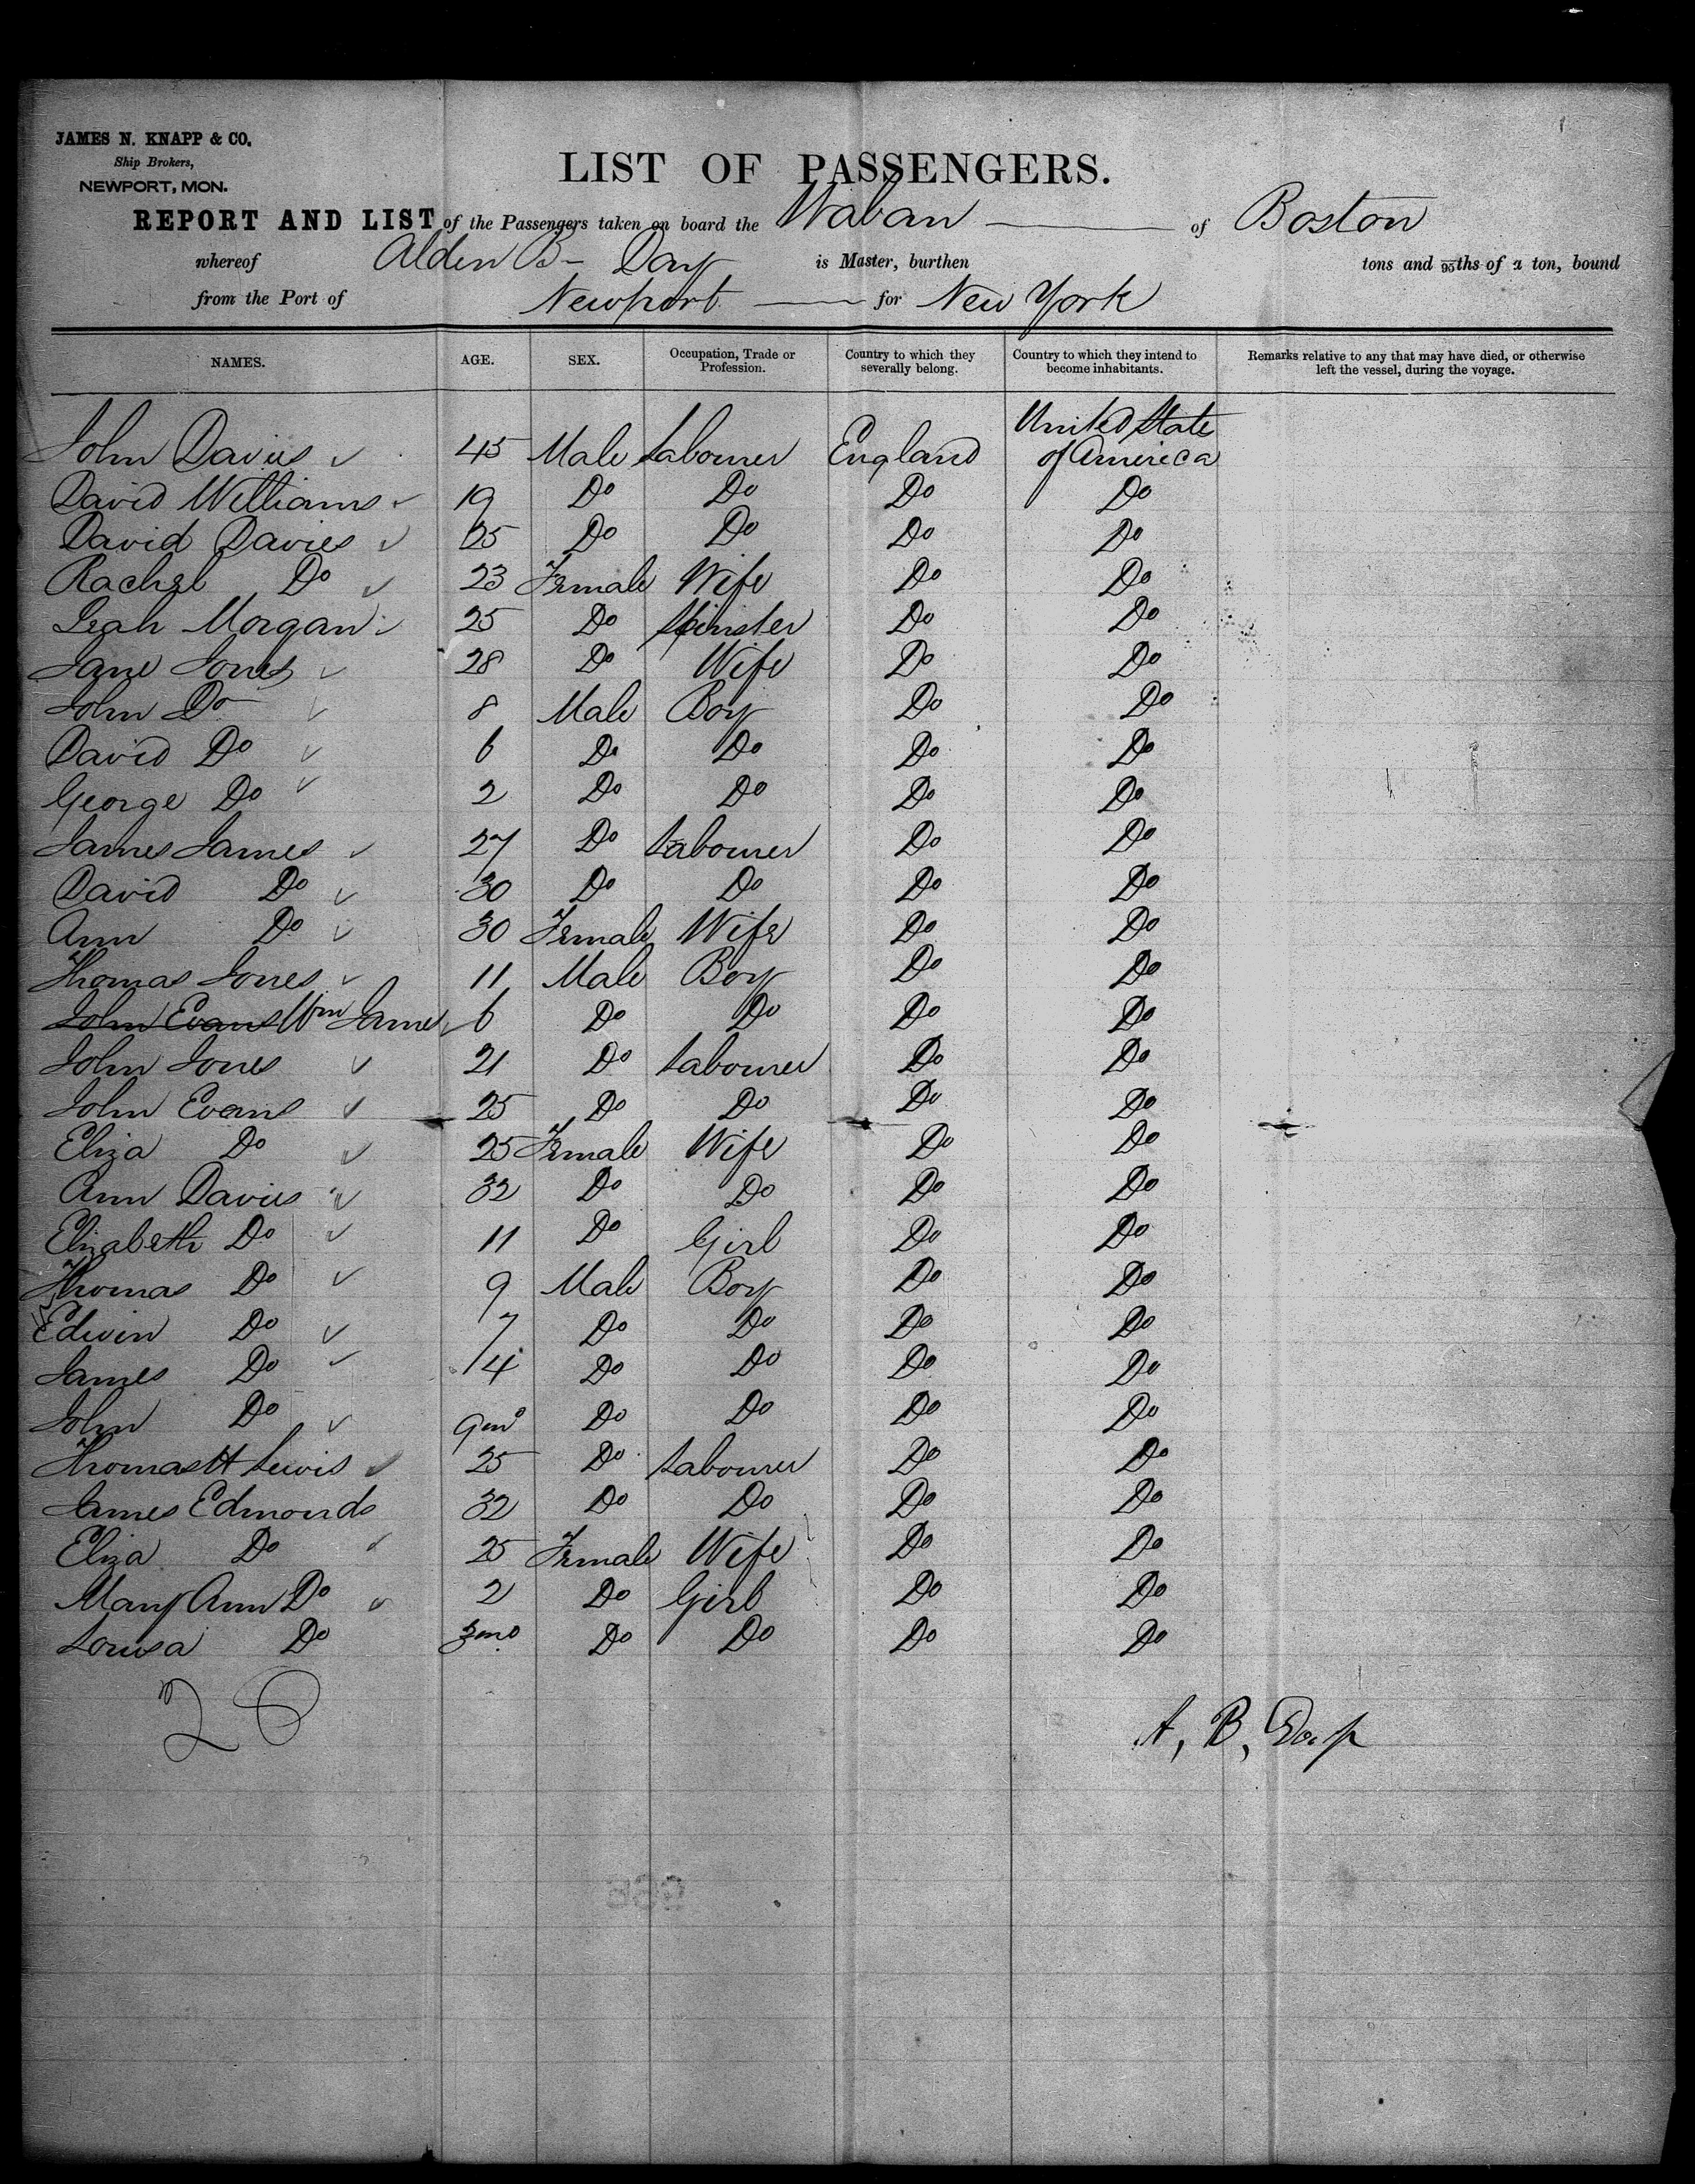 JAMES N. KNAPP & CO.
Ship Brokers,
NEWPORT, MON.
LIST OF PASSENGERS.
REPORT AND LIST of the Passengers taken on board the Waban of Boston
whereof Alden B - Day is Master, burthen tons and 95ths of a ton, bound
from the Port of Newport for New York
NAMES. AGE. SEX. Occupation, Trade or Profession. Country to which they severally belong. Country to which they intend to become inhabitants. Remarks relative to any that may have died, or otherwise left the vessel, during the voyage.
John Davies 45 Male Labourer England United State of America
David Williams 19 Do Do Do Do
David Davies 25 Do Do Do Do
Rachel Do 23 Female Wife Do Do
Leah Morgan 25 Do Spinster Do Do
Jane Jones 28 Do Wife Do Do
John Do 8 Male Boy Do Do
David Do 6 Do Do Do Do
George Do 2 Do Do Do Do
James James 27 Do Labourer Do Do
David Do 30 Do Do Do Do
Ann Do 30 Female Wife Do Do
Thomas Jones 11 Male Boy Do Do
John Evans Wm James 6 Do Do Do Do
John Jones 21 Do Labourer Do Do
John Evans 25 Do Do Do Do
Eliza Do 25 Female Wife Do Do
Ann Davies 32 Do Do Do Do
Elizabeth Do 11 Do Girl Do Do
Thomas Do 9 Male Boy Do Do
Edwin Do 7 Do Do Do Do
James Do 4 Do Do Do Do
John Do 9mo Do Do Do Do
Thomas H Lewis 25 Do Labourer Do Do
James Edmonds 32 Do Do Do Do
Eliza Do 25 Female Wife Do Do
Mary Ann Do 2 Do Girl Do Do
Louisa Do 3mo Do Do Do Do
28
A, B, Day